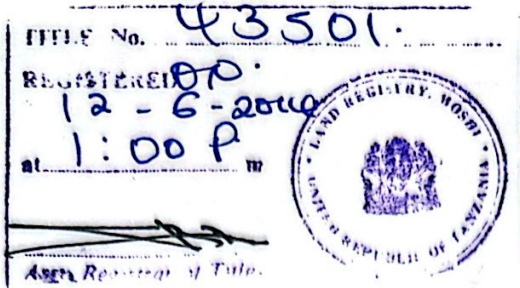 TITLE No. 43501.
REGISTERED
12 - 6 - 20
at 1:00 P m
Asst. Registrar of Titles
LAND REGISTRY, MOSHI
UNITED REPUBLIC OF TANZANIA